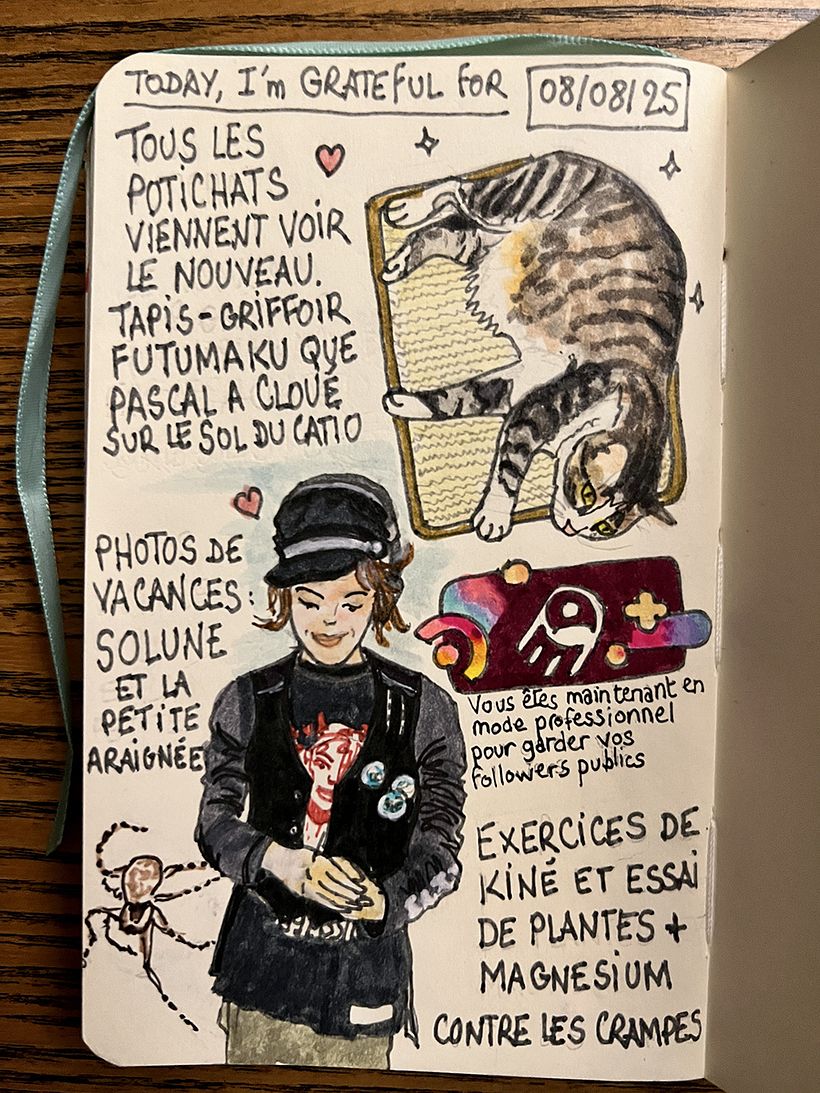 TODAY, I'm GRATEFUL FOR
08/08/25
TOUS LES
POTICHATS
VIENNENT VOIR
LE NOUVEAU.
TAPIS-GRIFFOIR
FUTUMAKU QUE
PASCAL A CLOUÉ
SUR LE SOL DU CATIO
PHOTOS DE
VACANCES:
SOLUNE
ET LA
PETITE
ARAIGNÉE
Vous êtes maintenant en
mode professionnel
pour garder vos
followers publics
EXERCICES DE
KINÉ ET ESSAI
DE PLANTES +
MAGNESIUM
CONTRE LES CRAMPES